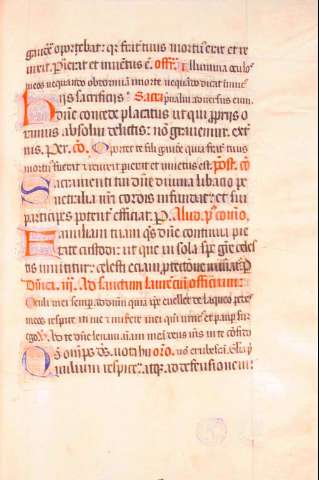 gaudere oportebat: qr frater tuus mortuus erat et re
uixit. Perierat et inuentus e. offr. Illumina oculos
meos nequando obdormia in morte nequando dicat inimic
Hijs sacrificijs
dne concede placatus ut qui proprijs o
ramus absolui delictis: no grauemur exter
nis. Per. co. Oportet te fili gaudere quia frater tuus
mortuus fuerat et reuixit perierat et inuentus est. post. co
Sacramenti tui dne diuina libatio pe
netralia nri cordis infundat: et sui
participes potenter efficiat. P. Alia.
Familiam tuam qs dne continua pie
tate custodi: ut que in sola spe gre celes
tis innititur: celesti etiam protectione muniat. P
Dnica. iij. Ad sanctum laurecium officium:
Oculi mei semper ad dnm quia ipse euellet de laqueo pedes
meos respice in me et miserere mei qm unicus et pauper sum
ego. Ad te dne leuaui aiam meam deus ms in te cofido
Qs omps ds. uota hu oro. non erubescam. Gloria p
milium respice: atqz ad defensionem